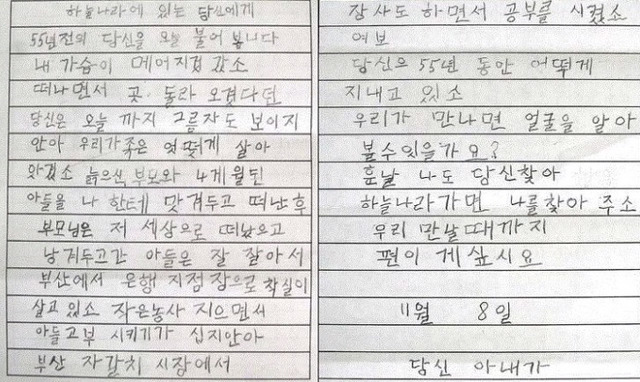 하늘나라에 있는 당신에게
55년전의 당신을 오늘 불어 봅니다
내 가슴이 메어지겁 같소
떠나면서 곳. 돌라 오겠다던
당신은 오늘 까지 그름자도 보이지
안아 우리가족은 엇떻게 살아
와겄소 늙으신 부모와 4개월된
아들을 나 한테 맞겨두고 떠난후
부모님은 저 세상으로 떠났오고
남겨두고간 아들은 잘 잘아서
부산에서 은행 지점장으로 착실이
살고 있소 작은농사 지으면서
아들고부 시키기가 십지안아
부산 자갈치 시장에서
잠사도 하면서 공부를 시켰소
여보
당신으 55년 동안 어떻게
지내고 있소
우리가 만나면 얼굴을 알아
볼수있을가요?
훈날 나도 당신찾아
하늘나라가면 나를찾아 주소
우리 만날때까지
편이 게싶시요
11월 8일
당신 아내가